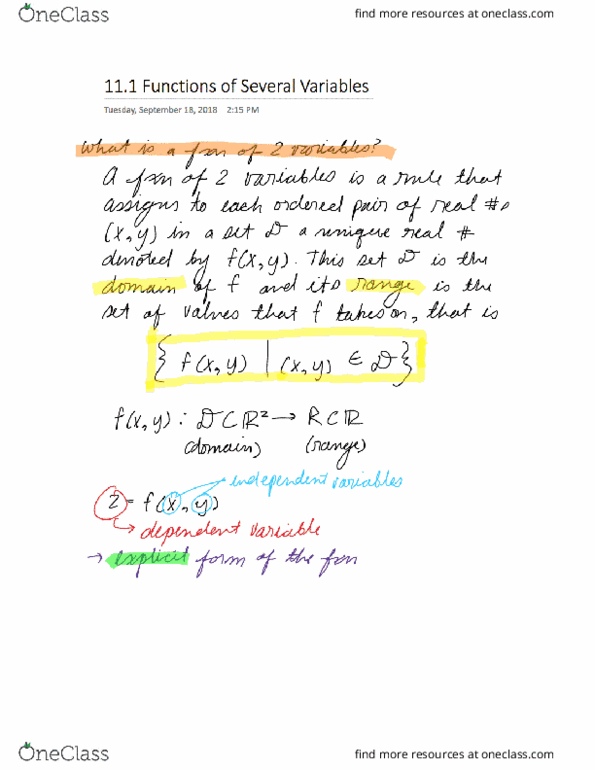 OneClass
find more resources at oneclass.com
11.1 Functions of Several Variables
Tuesday, September 18, 2018 2:15 PM
What is a fxn of 2 variables?
A fxn of 2 variables is a rule that
assigns to each ordered pair of real #s
(x,y) in a set D a unique real #
denoted by f(x,y). This set D is the
domain of f and its range is the
set of values that f takes on, that is
{ f(x,y) | (x,y) ∈ D }
f(x,y) : D ⊂ ℝ² → R ⊂ ℝ
(domain) (range)
→ independent variables
z = f(x,y)
↳ dependent variable
→ explicit form of the fxn
OneClass
find more resources at oneclass.com